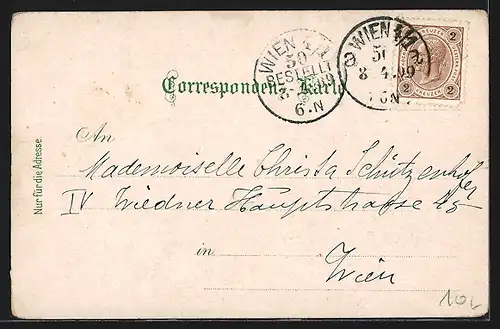 WIEN 4/1
50
BESTELLT
6.N
WIEN 4/1
50
8 4 99
6N
KREUZER
2 2
KREUZER
Correspondenz-Karte
Nur für die Adresse.
An
Mademoiselle Christa Schützenhofer
IV Wiedner Hauptstrasse 15
in
Wien
10.-